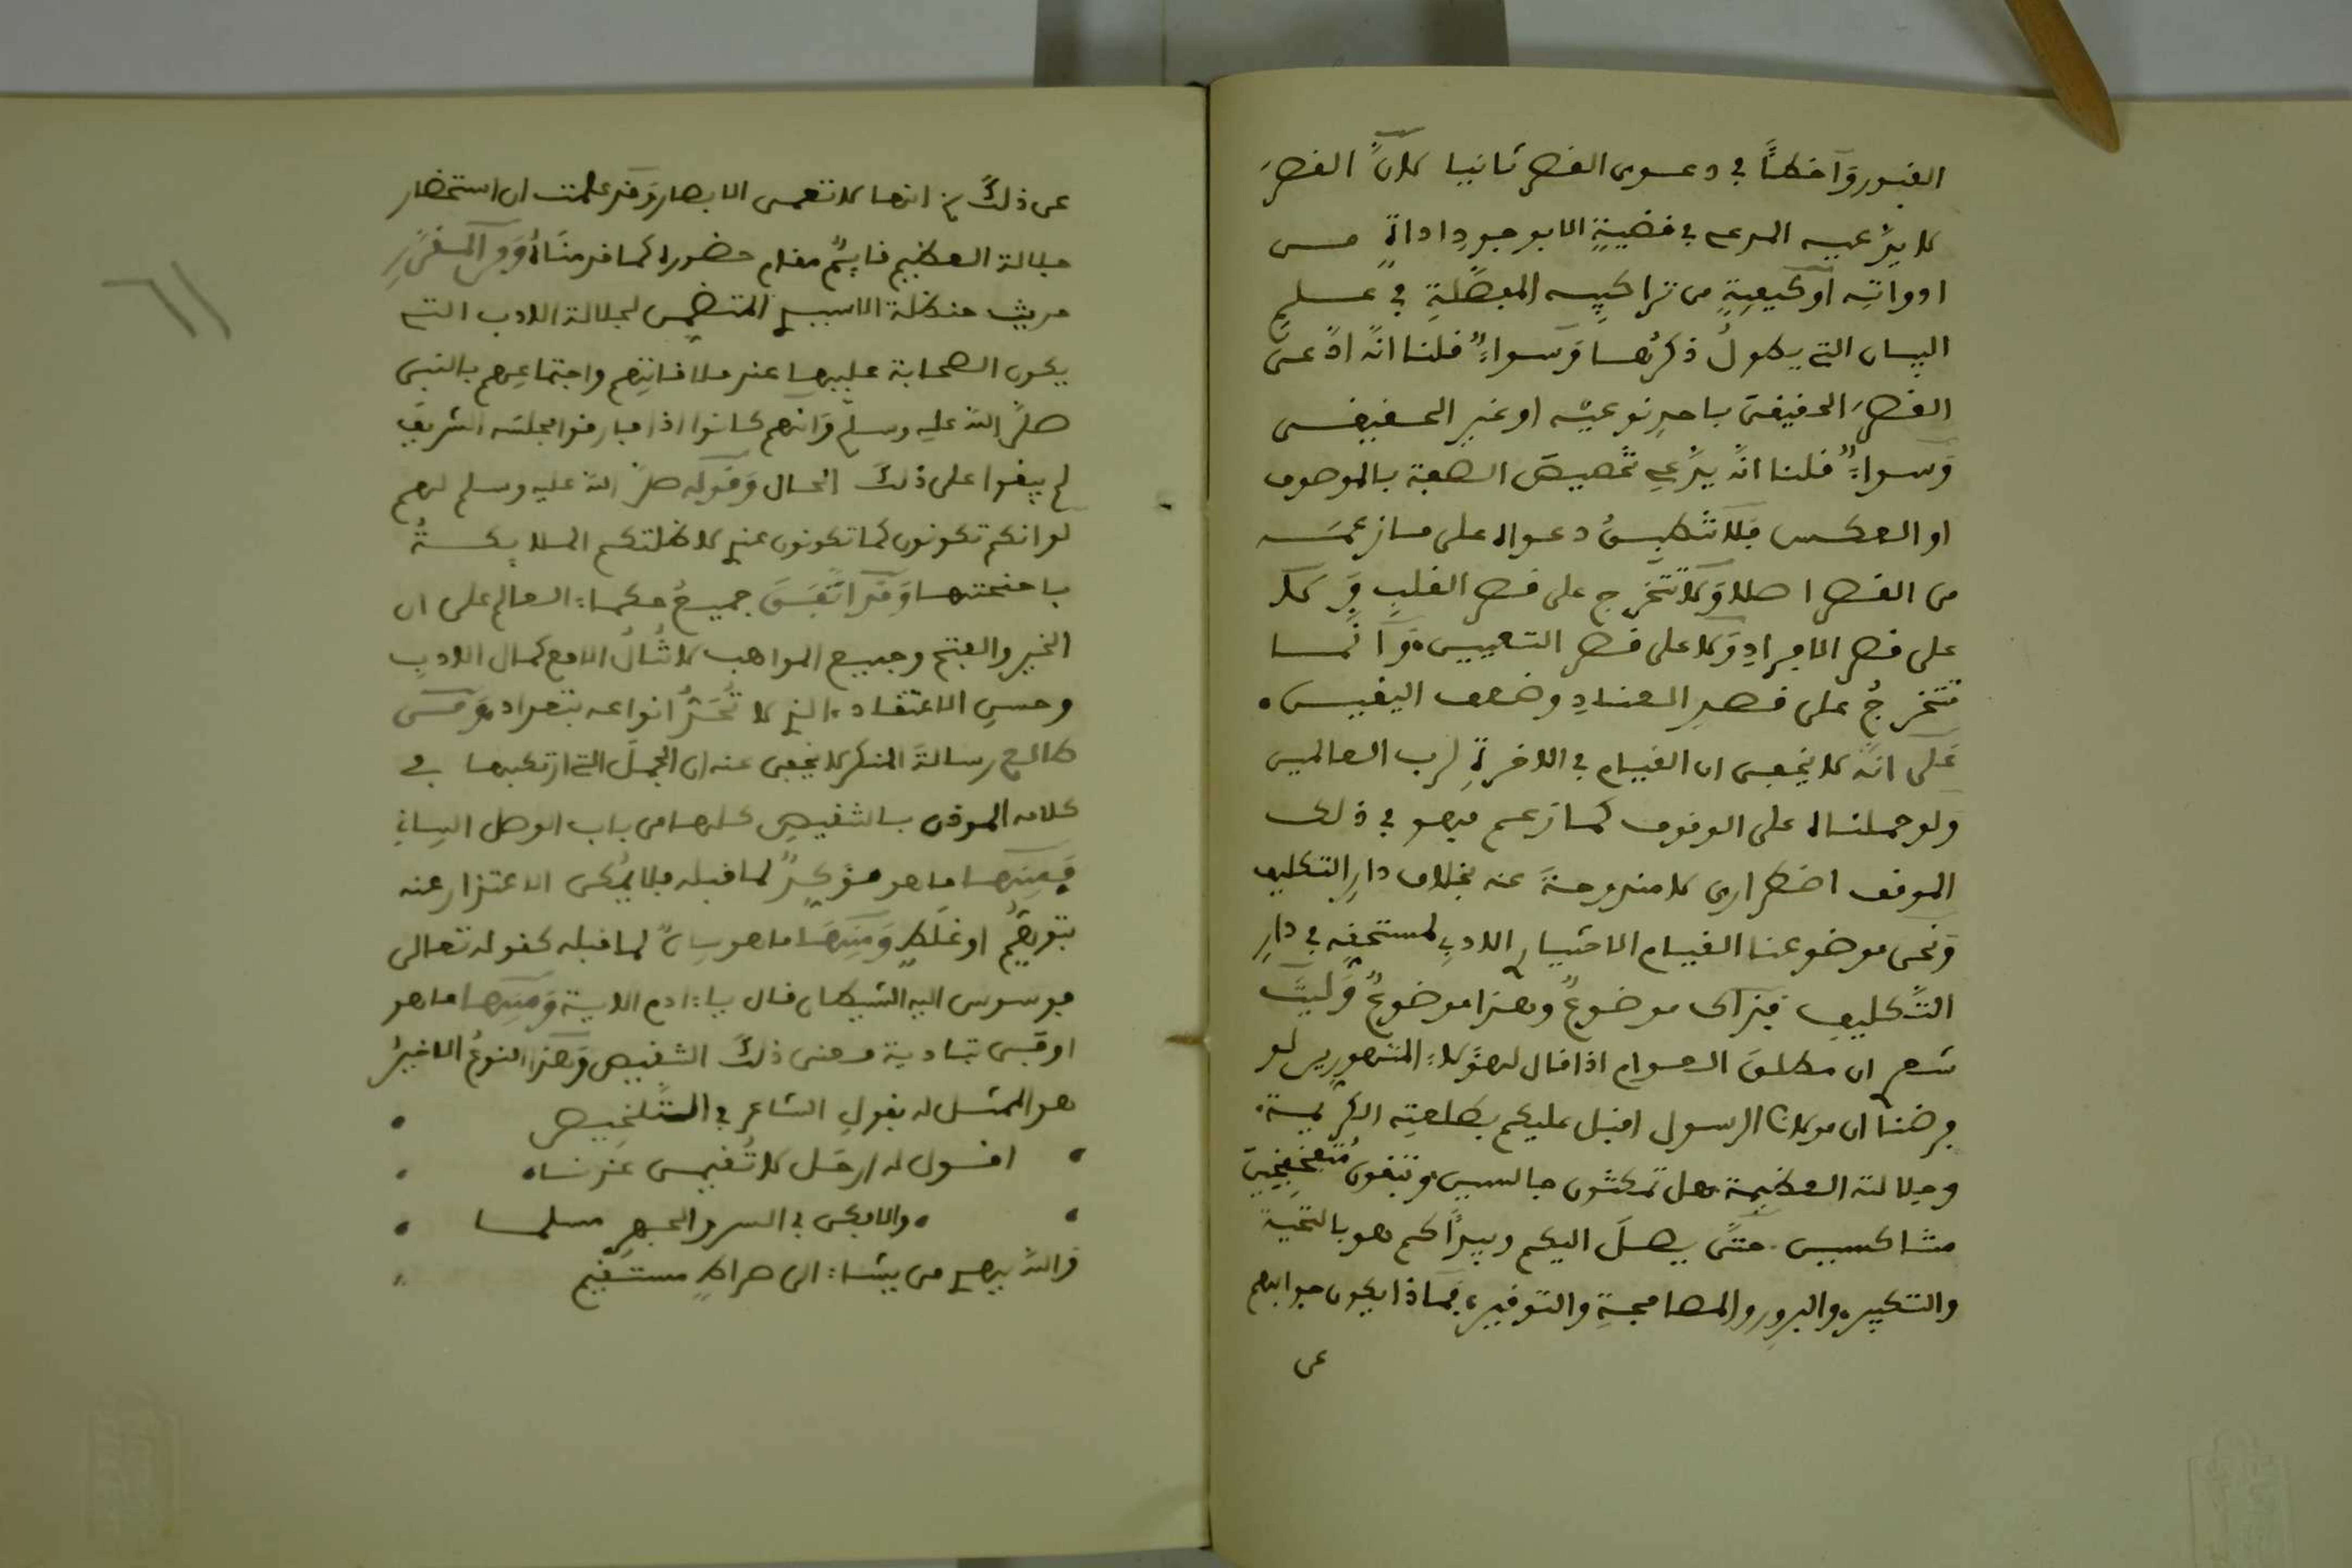 القبور وَأخطأ في دعوى القصر ثانيا لانَّ القصرَ
لا يدَّعيه المدعي في قضيةٍ الا بوجودِ اداةٍ من
ادواتِه او كيفيةٍ من تراكيبه المفصَّلةِ في علم
البيان التي يطولُ ذكرُها وَسواءٌ قلنا انَّه ادَّعى
القصرَ الحقيقىَ باحدِ نوعيْه او غيرِ الحقيقى
وَسواءٌ قلنا انَّه يدَّعي تخصيصَ الصفة بالموصوف
او العكس فَلا تنطبقُ دعواه على ما زعمَه
من القصر اصلا وَلا تتخرج على قصر القلبِ وَلا
على قصر الافرادِ وَلا على قصر التعيين، وَانَّما
تتخرجُ على قصرِ العنادِ وضعف اليقين،
عَلى انَّه لا يخفى ان القيام في الاخرةِ لرب العالمين
ولو حملناه على الوقوف كما زعم فهو في ذلك
الموقف اضطرارى لا مندوحةَ عنه بخلاف دارِ التكليف
وَنحن موضوعنا القيام الاختيارى الادبي لمستحقِه في دارِ
التَّكليف فَذاك موضوعٌ وهذا موضوعٌ وَليتَ
شعرى ان مطلقَ العوام اذا قال لهؤلاءِ المتهورين لو
فرضنا ان مولانا الرسول اقبل عليكم بطلعتِه الكريمة،
وجلالته العظيمة، هل تمكثون جالسين، وتبقون
حتَّى يصلَ اليكم ويبدأكم هو بالتحيةِ
والتكبير، والبرور والمصافحةِ والتوقير، فماذا يكون جوابهم
عن
عن ذلكَ فانها لا تعمى الابصار وَقد علمت ان استحضار
جلالة العظيم قايمٌ مقام حضوره كما قدمناهُ وَمن المقرَّرِ
حديث حنظلة الاسيدي المتضمن لجلالة الادب التي
يكون الصحابة عليها عند ملاقاتِهم واجتماعِهم بالنبى
صلَّى الله عليه وسلَّم وَانَّهم كانوا اذا فارقوا مجلسَه الشريفَ
لم يبقوا على ذلكَ الحال وَقوله صلَّى الله عليه وسلم لهم
لو انكم تكونون كما تكونون عندي لاظلتكم الملايكةُ
باجنحتها وَقد اتَّفَقَ جميعُ حكماءِ العالم على ان
الخير والفتح وجميع المواهب لا تُنالُ الا مع كمال الادبِ
وحسنِ الاعتقاد، الذي لا تُحَدُّ انواعه بتعداد، وَمَن
طالع رسالةَ المنكر لا يخفى عنه ان الجملَ التي ارتكبها في
كلامه كلها من باب الوصل البياني
فَمِنها ما هو مؤكدٌ لما قبله فلا يمكن الاعتذار عنه
بتوهُّمٍ او غلَطٍ وَمِنهَا ما هو بيانٌ لما قبله كقوله تعالى
فوسوس اليه الشيطان قال يا ءادم الاية وَمِنها ما هو
معنى ذلكَ وَهذا النوعُ الاخيرُ
هو الممثل له بقول الشاعر في التَّلخيص
اقول له ارحل لا تُقيمن عندنا،
، والا فكن في السر والجهرِ مسلما
وَالله يهدى من يشاءُ الى صراطٍ مستقيم